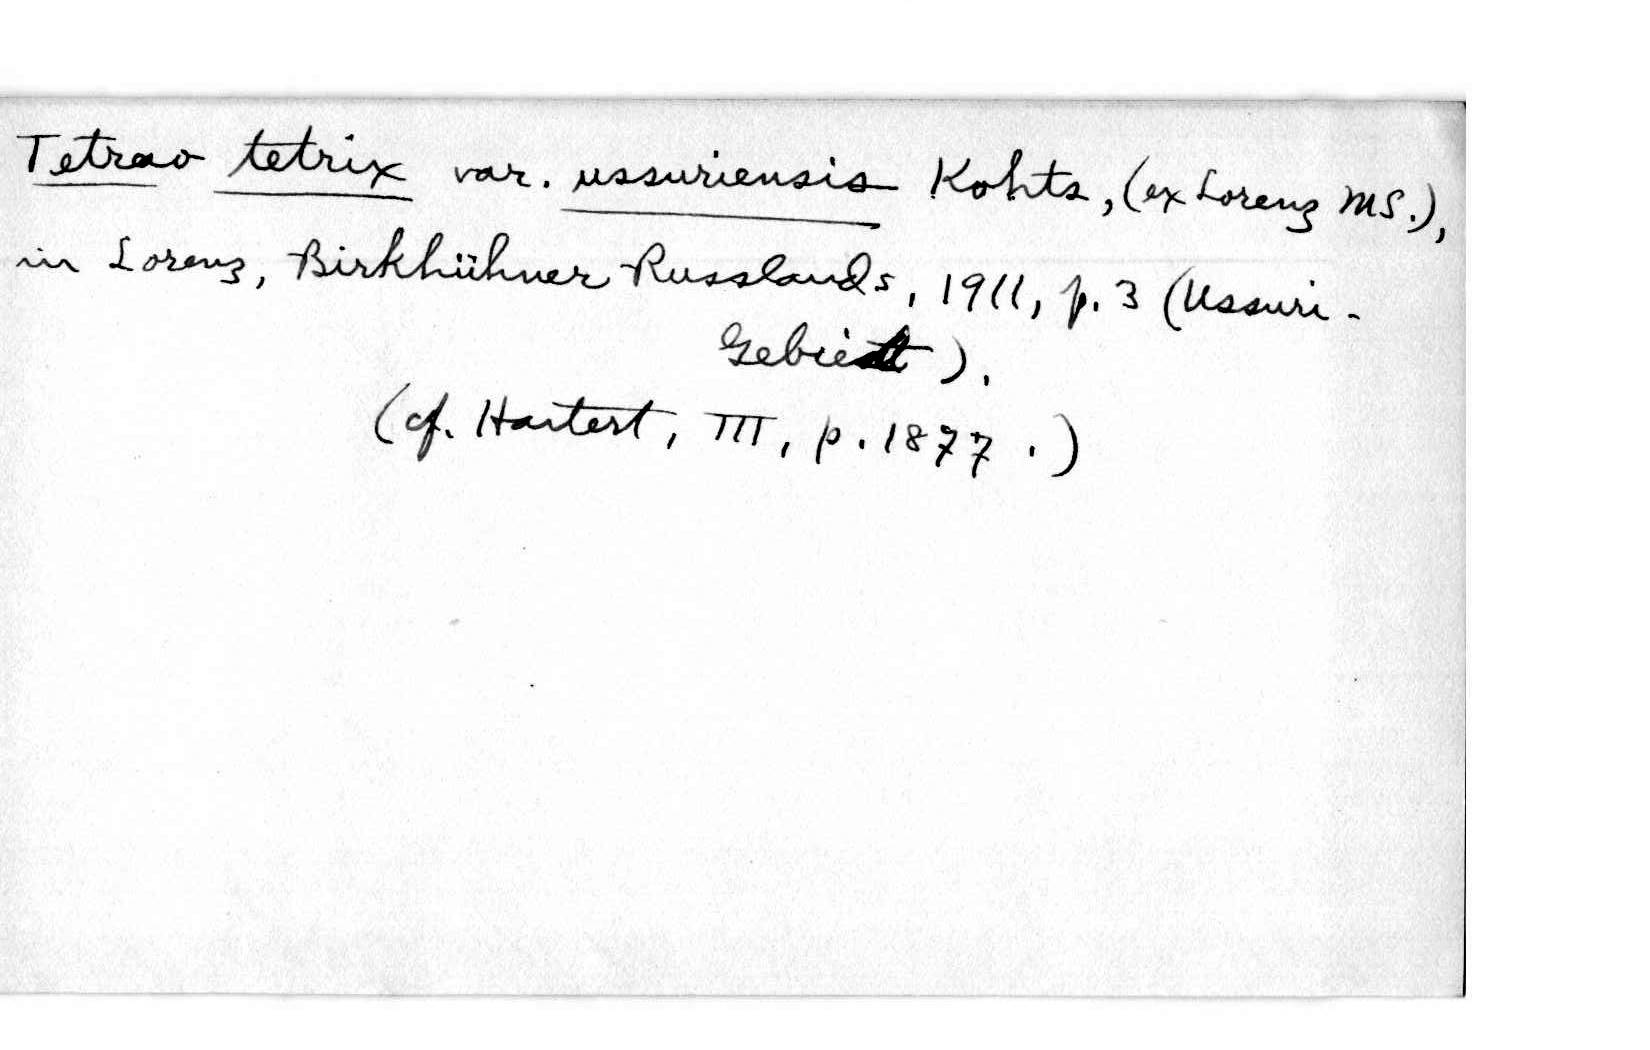 Tetrao tetrix var. ussuriensis Kohts, (ex Lorenz MS.),
in Lorenz, Birkhühner Russlands, 1911, p. 3 (Ussuri-
Gebiet).
(cf. Hartert, III, p. 1877.)